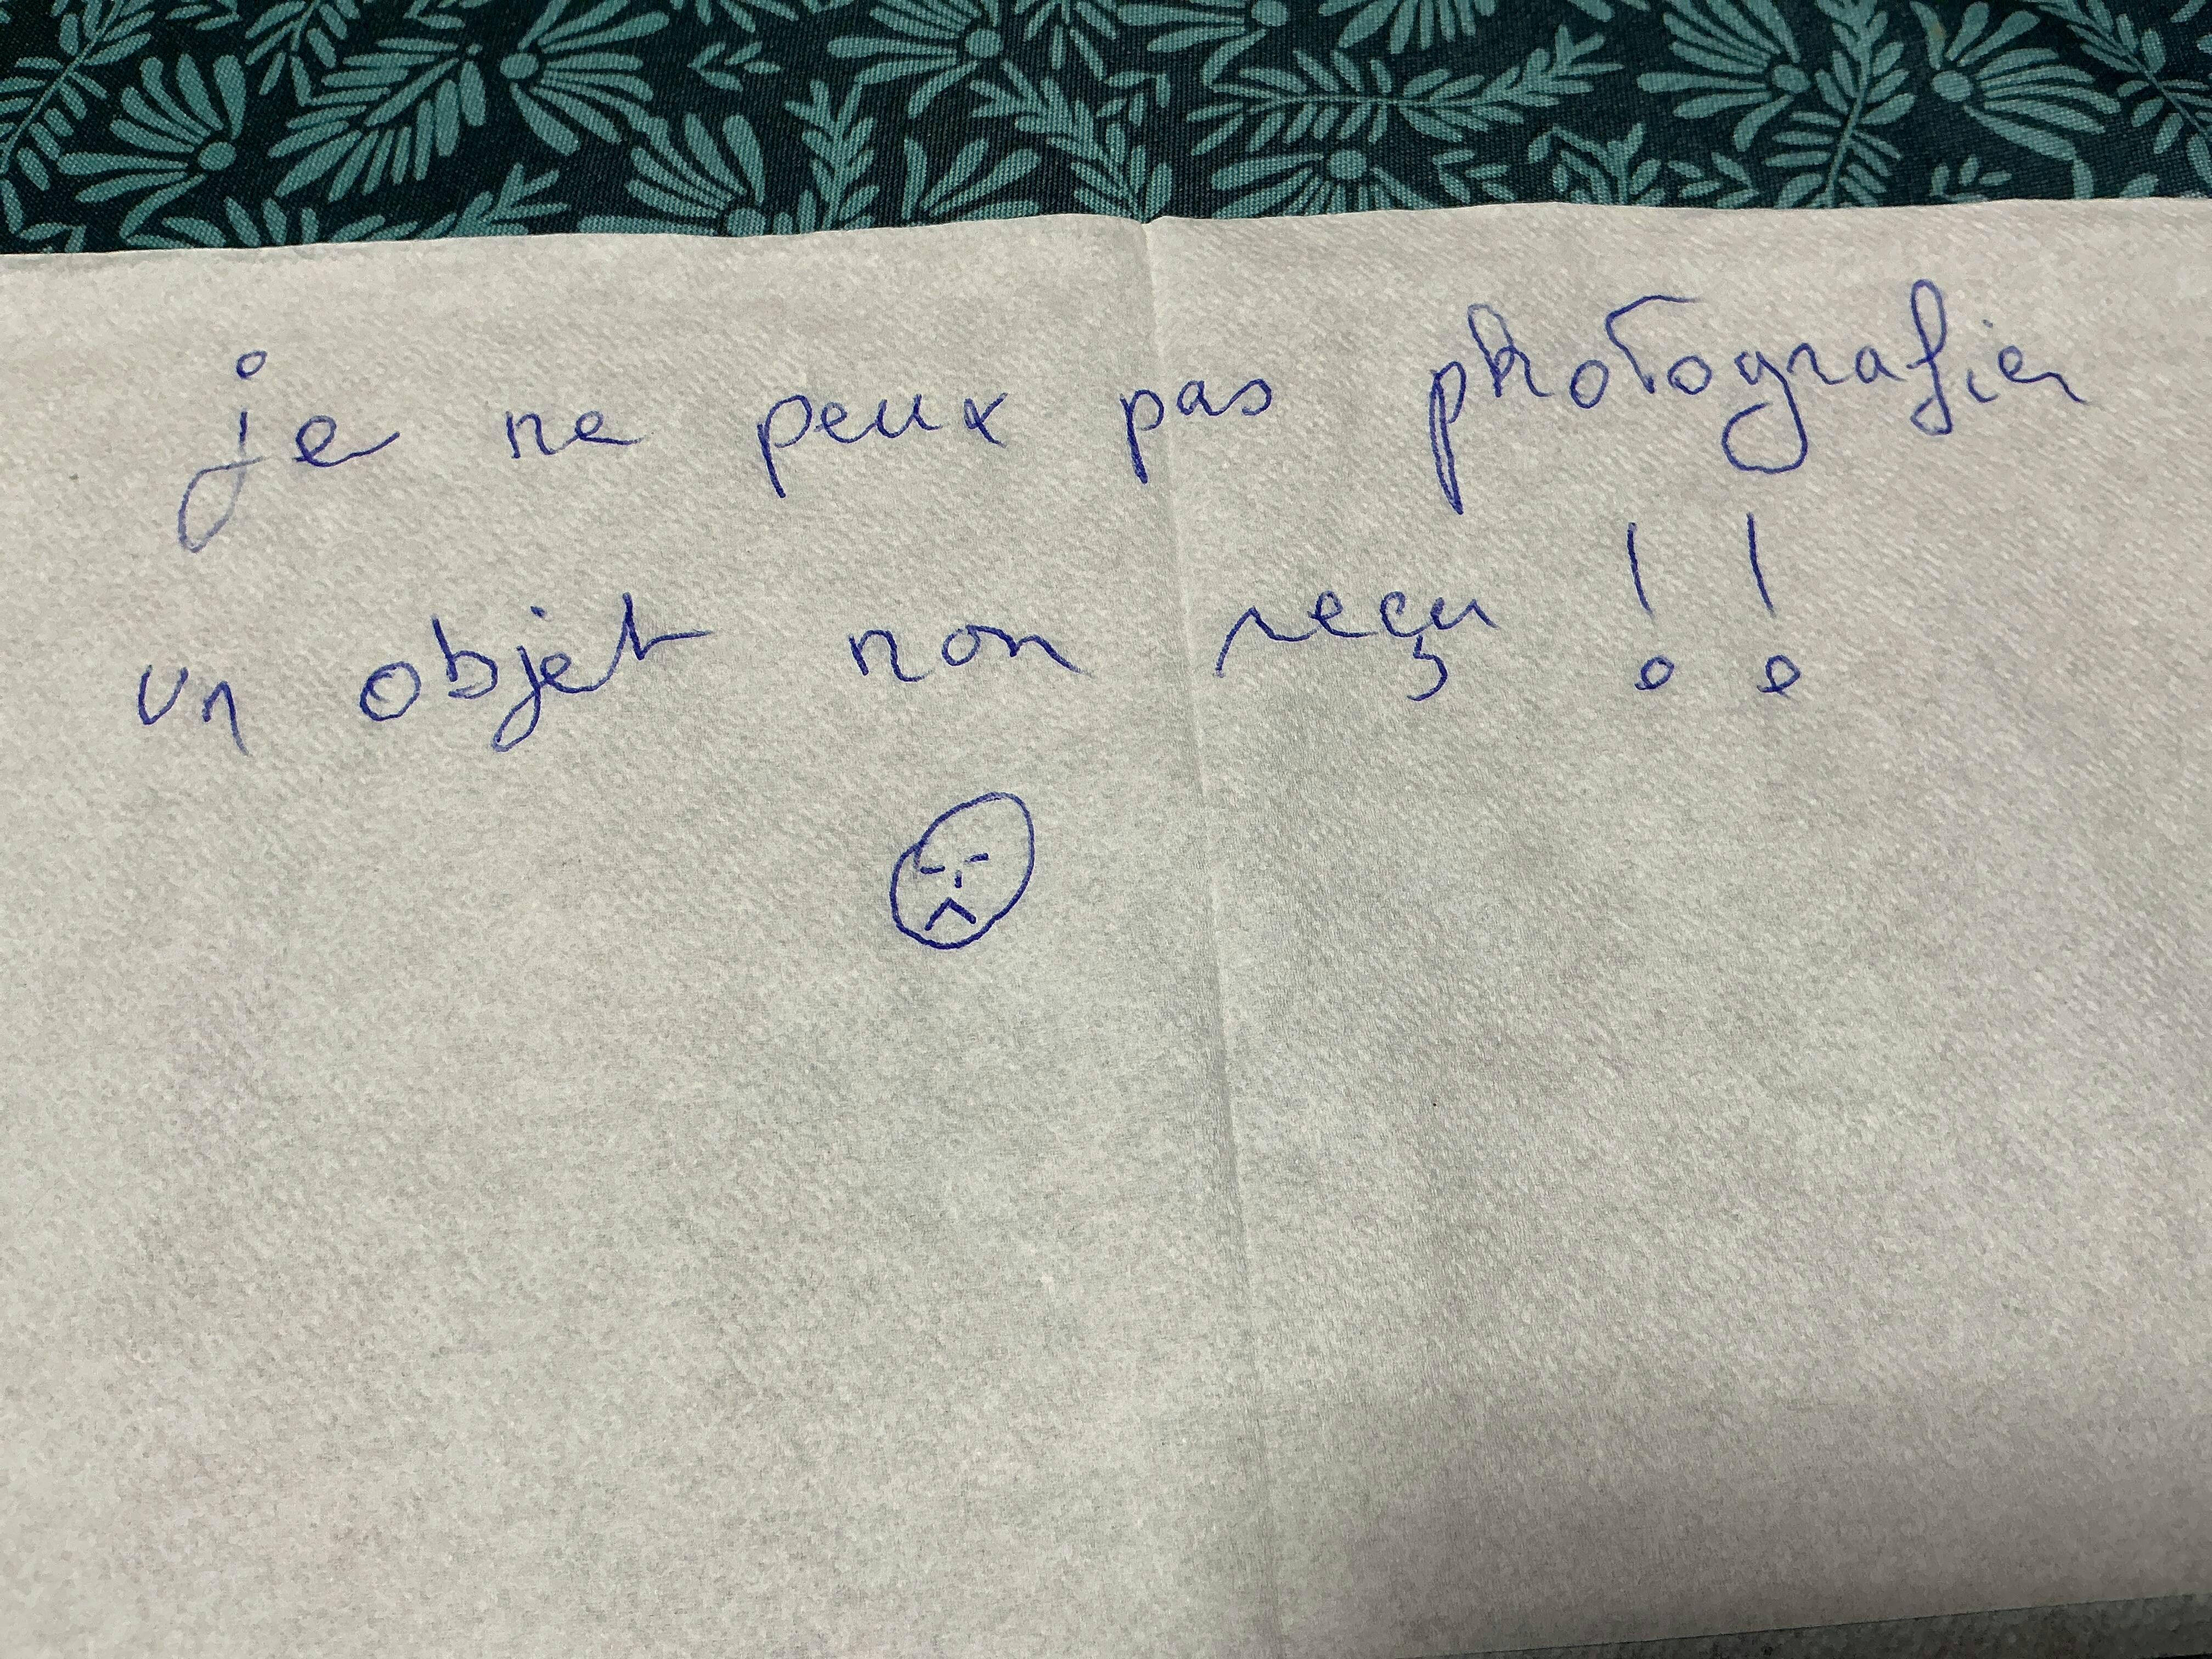 je ne peux pas photografier
un objet non reçu !!